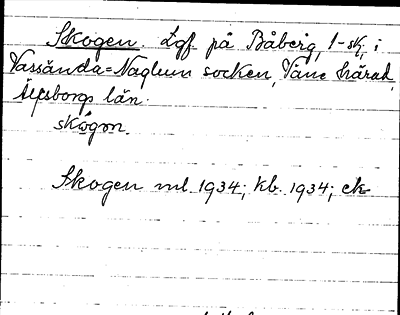 Skogen. Lgf. på Båberg, 1-sk, i
Vassända-Naglum socken, Väne härad,
Älfsborgs län.
skógɷn.
Skogen ml 1934; kb. 1934; ek